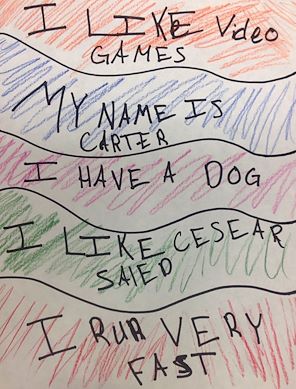 I LIKE Video
GAMES
MY NAME IS
CARTER
I HAVE A DOG
I LIKE CESEAR
SAIED
I RUN VERY
FAST